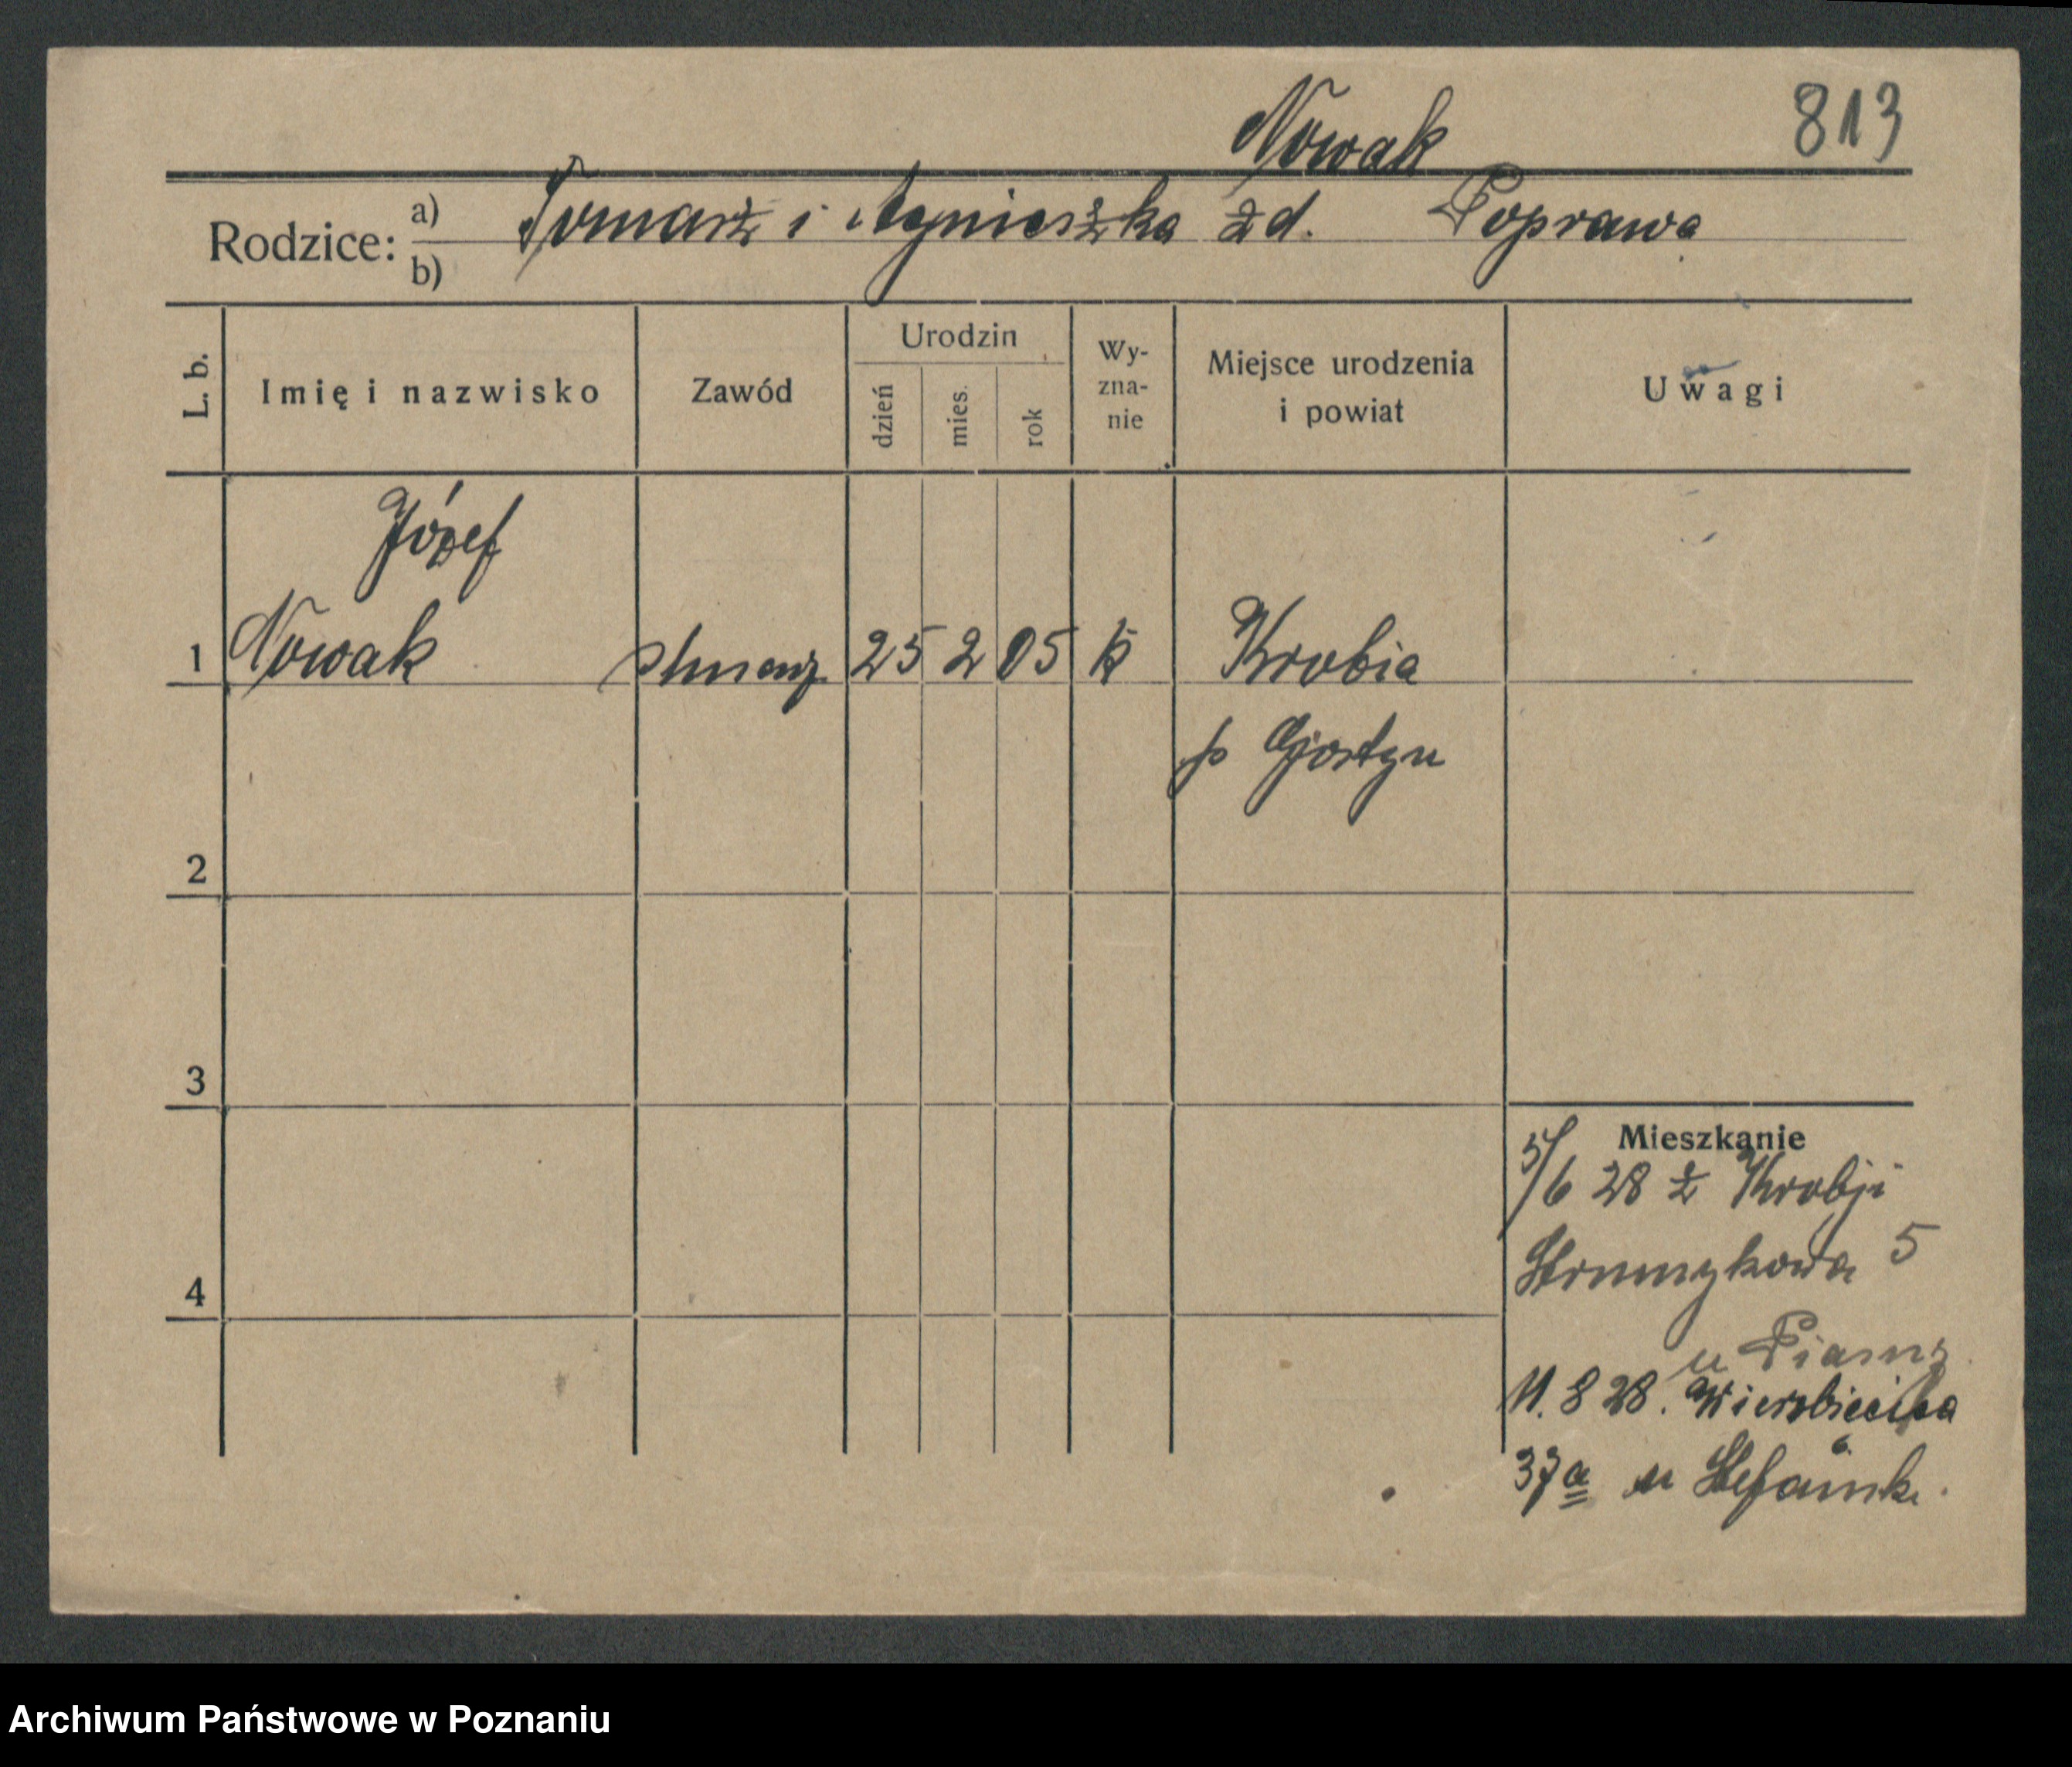 Nowak 813
Rodzice: a) Tomasz i Agnieszka zd. Poprawa
b)
L. b. Imię i nazwisko Zawód Urodzin dzień mies. rok Wy-zna-nie Miejsce urodzenia i powiat Uwagi
Józef
1 Nowak 25 2 05 k Krobia
p Gostyn
2
3
Mieszkanie
5/6 28 z Krobji
4 Strumykowa 5
u
11. 8 28. Wierzbięcice
37a u
Archiwum Państwowe w Poznaniu